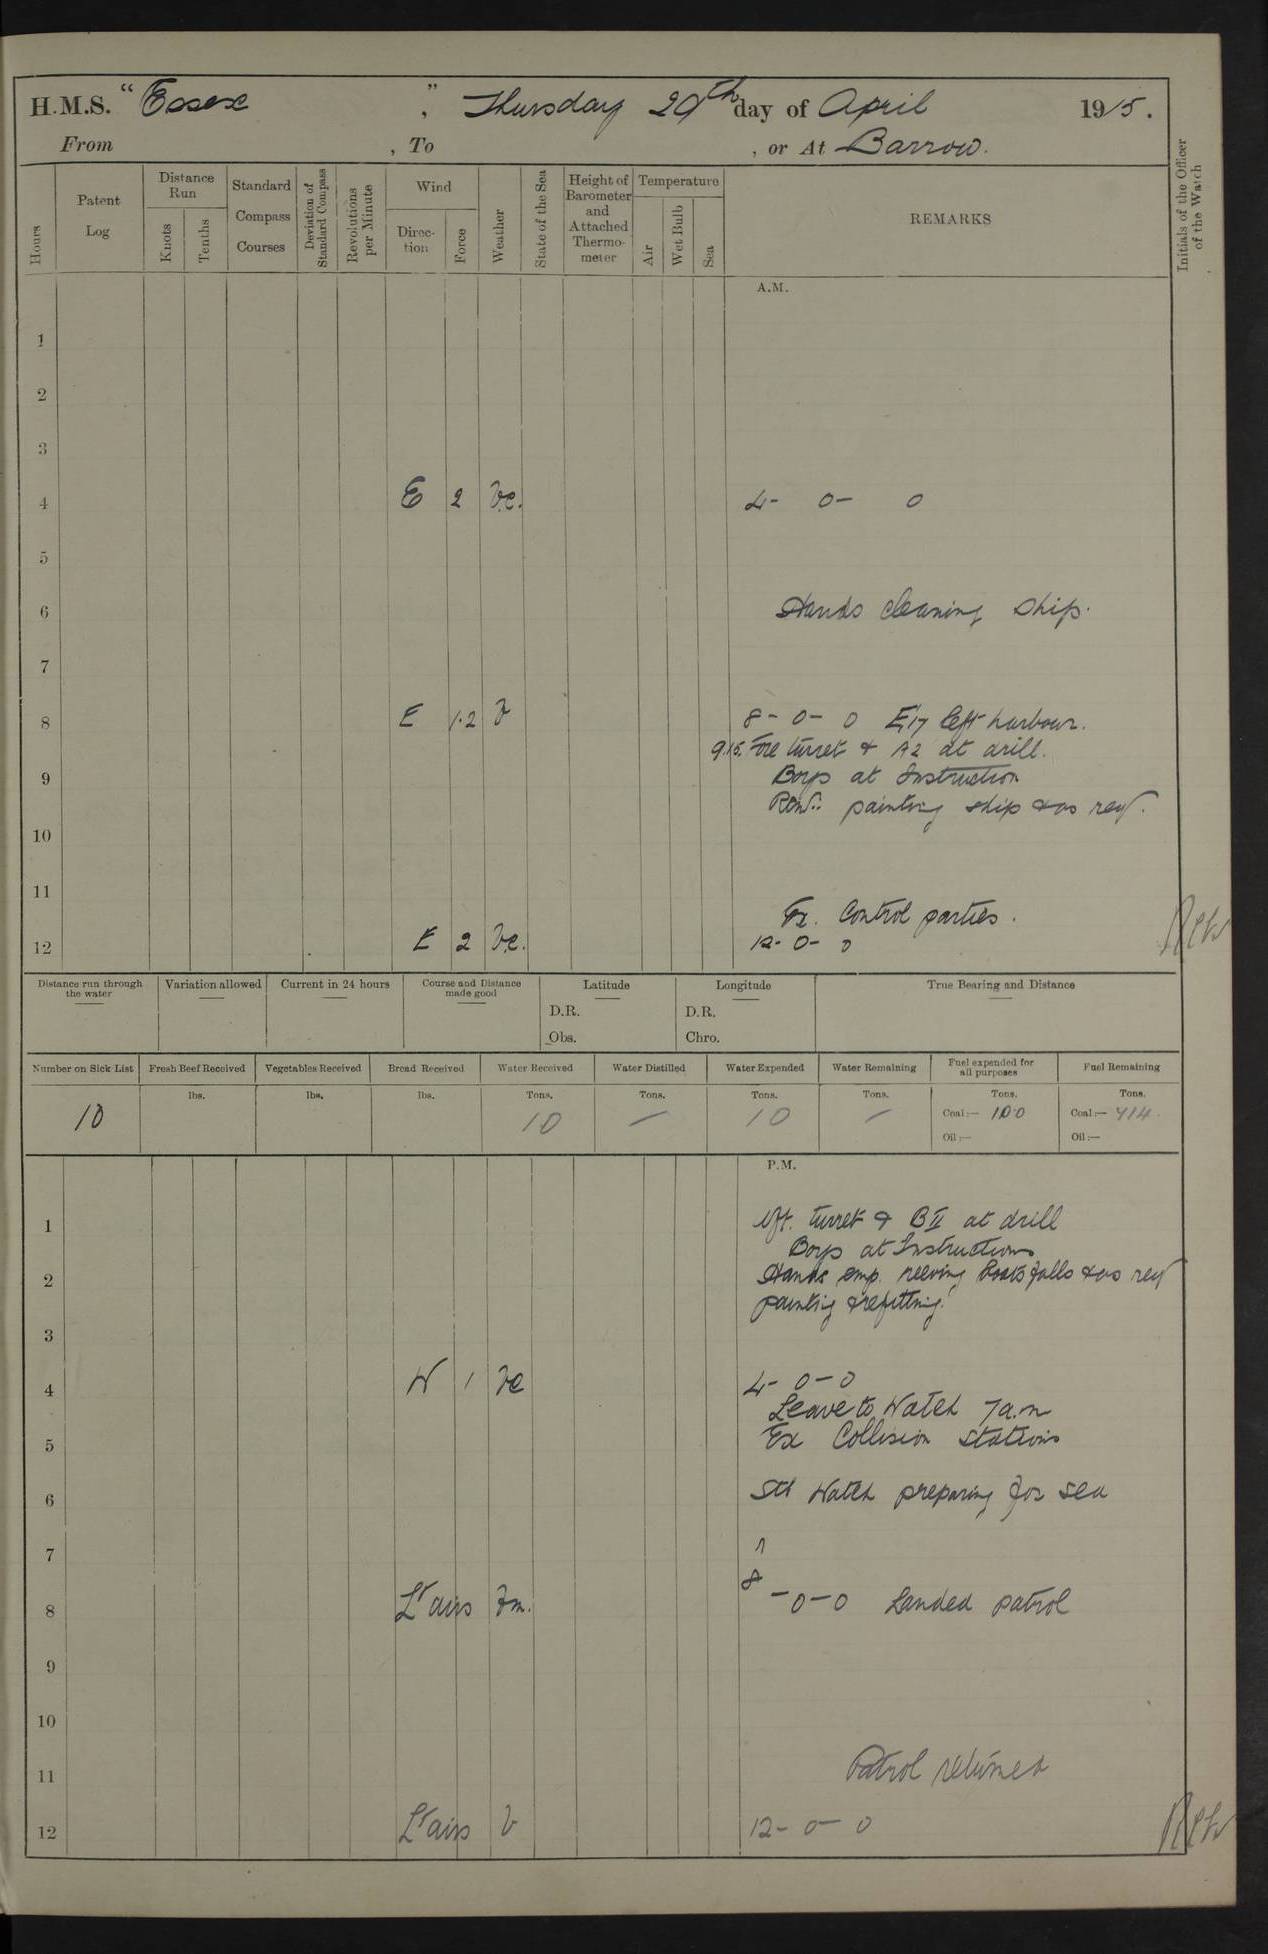 H.M.S. “ Essex ” , Thursday 29th day of April 1915.
From , To , or At Barrow.
Hours
Patent Log
Distance Run
Knots
Tenths
Standard Compass Courses
Deviation of Standard Compass
Revolutions per Minute
Wind
Direc-tion
Force
Weather
State of the Sea
Height of Barometer and Attached Thermo-meter
Temperature
Air
Wet Bulb
Sea
REMARKS
Initials of the Officer of the Watch
A.M.
1
2
3
4 E 2 b.c. 4- 0- 0
5
6 Hands cleaning ship.
7
8 E 1.2 b 8- 0- 0 E17 left harbour.
9.15. Fore turret & A2 at drill.
9 Boys at Instruction
painting ship & as req.
10
11
Ex. Control parties.
12 E 2 b.c. 12- 0- 0
Distance run through the water
Variation allowed
Current in 24 hours
Course and Distance made good
Latitude
D.R.
Obs.
Longitude
D.R.
Chro.
True Bearing and Distance
Number on Sick List
Fresh Beef Received
Vegetables Received
Bread Received
Water Received
Water Distilled
Water Expended
Water Remaining
Fuel expended for all purposes
Fuel Remaining
lbs. lbs. lbs. Tons. Tons. Tons. Tons. Tons. Tons.
10 10 — 10 — Coal:— 10·0 Coal:— 914
Oil:— Oil:—
P.M.
1 Aft. turret & BII at drill
Boys at Instructions
2 Hands emp. reeving boats falls & as req
painting & refitting.
3
4 W 1 bc 4- 0-0
Leave to Watch 7 a.m
5 Ex Collision Stations
6 Stb Watch preparing for sea
7
8 Lt airs f.m. 8 -0-0 Landed patrol
9
10
11 Patrol returned
12 Lt airs b 12- 0- 0